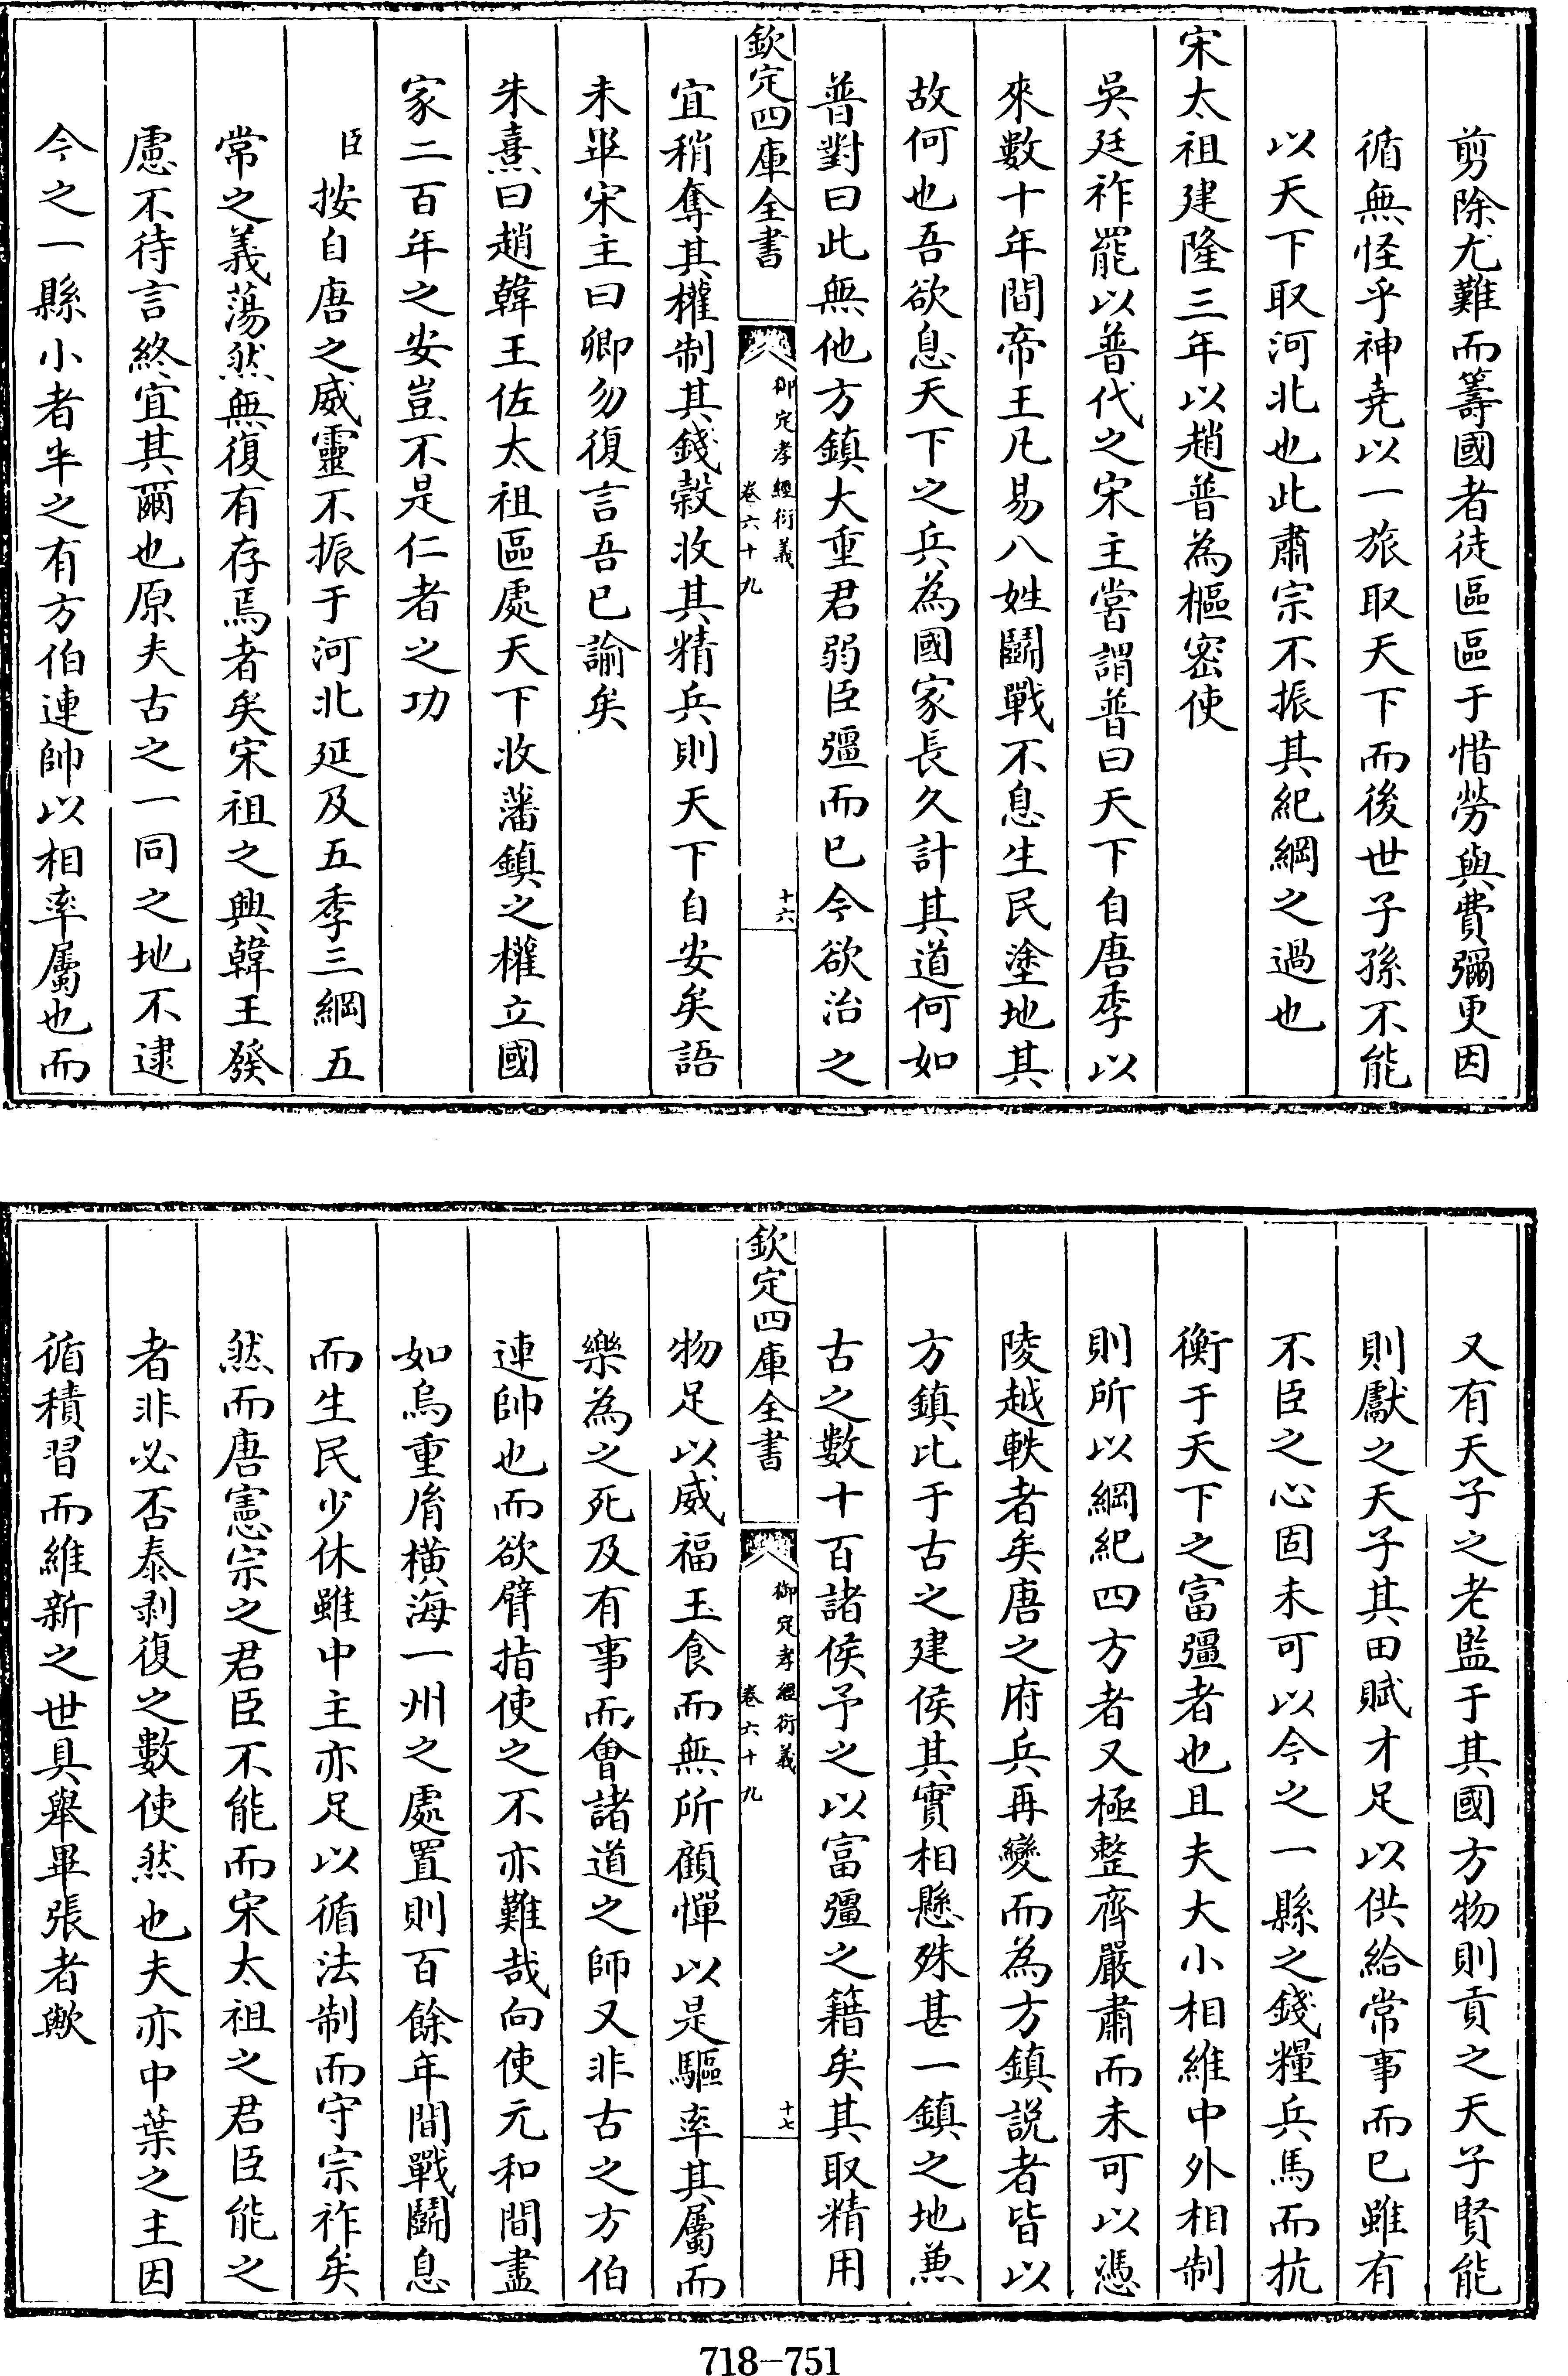 剪除尤難而籌國者徒區區于惜勞與費彌更因
循無怪乎神堯以一旅取天下而後世子孫不能
以天下取河北也此肅宗不振其紀綱之過也
宋太祖建隆三年以趙普為樞密使
吳廷祚罷以普代之宋主嘗謂普曰天下自唐季以
來數十年間帝王凡易八姓鬭戰不息生民塗地其
故何也吾欲息天下之兵為國家長久計其道何如
普對曰此無他方鎮大重君弱臣彊而已今欲治之
欽定四庫全書
御定孝經衍義
卷六十九
十六
宜稍奪其權制其錢穀收其精兵則天下自安矣語
未畢宋主曰卿勿復言吾已諭矣
朱熹曰趙韓王佐太祖區處天下收藩鎮之權立國
家二百年之安豈不是仁者之功
臣按自唐之威靈不振于河北延及五季三綱五
常之義蕩然無復有存焉者矣宋祖之興韓王發
慮不待言終宜其爾也原夫古之一同之地不逮
今之一縣小者半之有方伯連帥以相率屬也而
又有天子之老監于其國方物則貢之天子賢能
則獻之天子其田賦才足以供給常事而已雖有
不臣之心固未可以今之一縣之錢糧兵馬而抗
衡于天下之富彊者也且夫大小相維中外相制
則所以綱紀四方者又極整齊嚴肅而未可以憑
陵越軼者矣唐之府兵再變而為方鎮説者皆以
方鎮比于古之建侯其實相懸殊甚一鎮之地兼
古之數十百諸侯予之以富彊之籍矣其取精用
欽定四庫全書
御定孝經衍義
卷六十九
十七
物足以威福玉食而無所顧憚以是驅率其屬而
樂為之死及有事而會諸道之師又非古之方伯
連帥也而欲臂指使之不亦難哉向使元和間盡
如烏重胤橫海一州之處置則百餘年間戰鬭息
而生民少休雖中主亦足以循法制而守宗祚矣
然而唐憲宗之君臣不能而宋太祖之君臣能之
者非必否泰剥復之數使然也夫亦中葉之主因
循積習而維新之世具舉畢張者歟
718-751